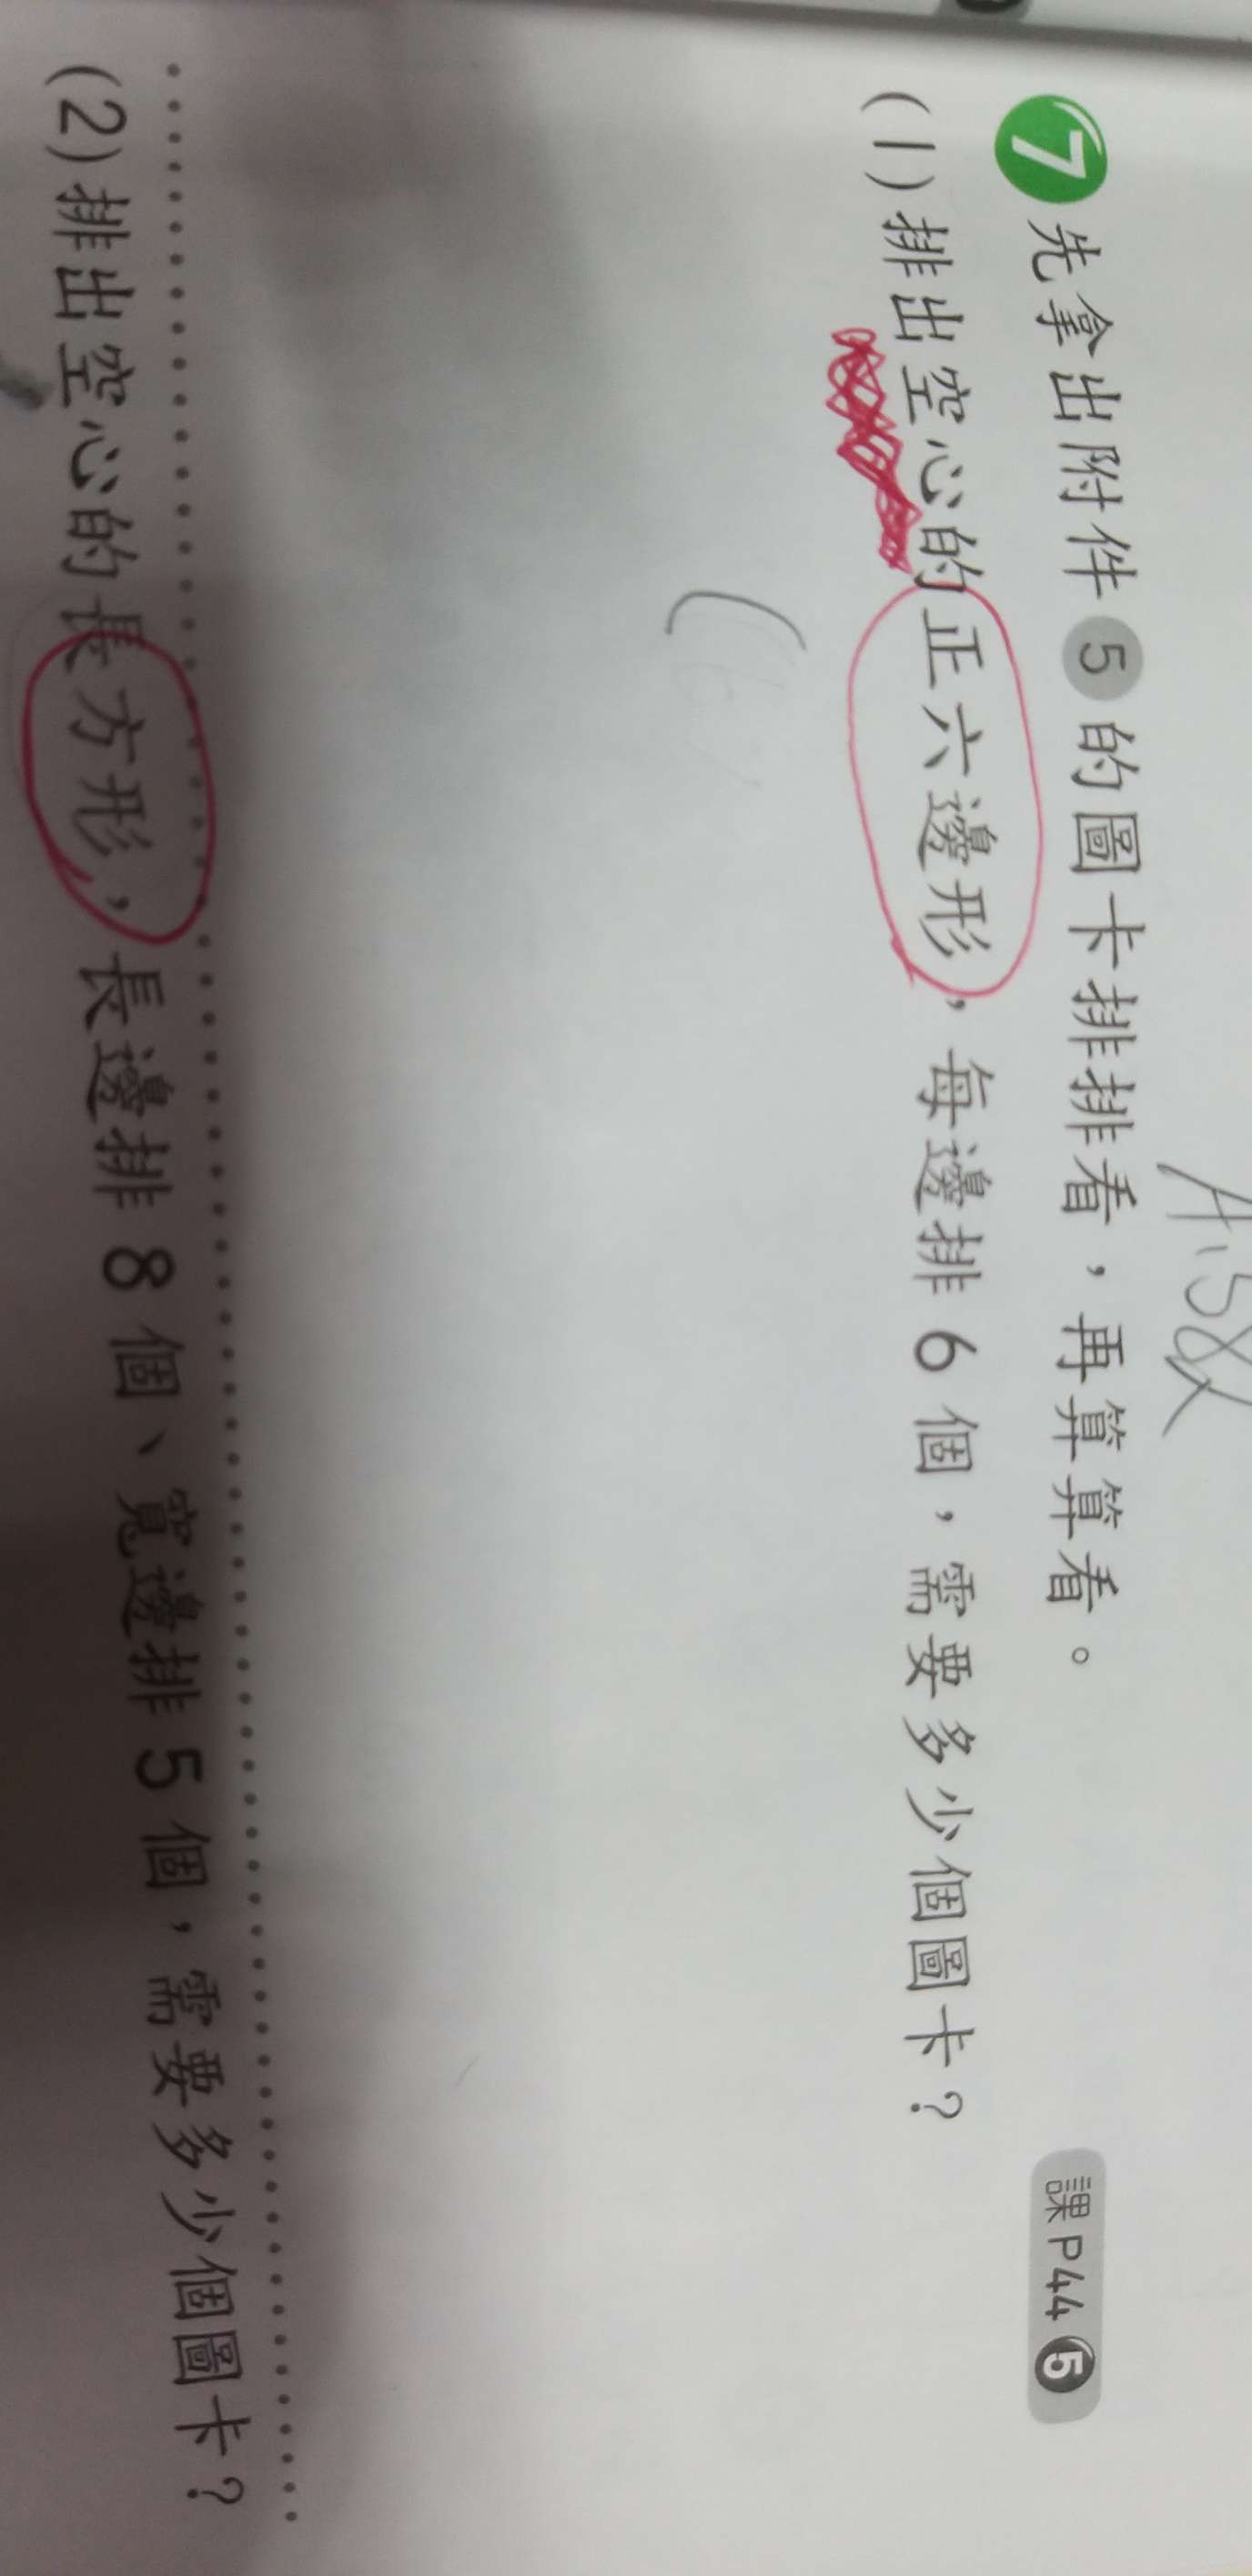 7 先拿出附件 5 的圖卡排排看，再算算看。 課P44 5
(1)排出空心的正六邊形，每邊排 6 個，需要多少個圖卡？
(2)排出空心的長方形，長邊排 8 個、寬邊排 5 個，需要多少個圖卡？